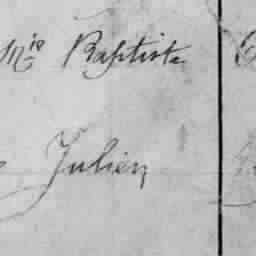 Mie Baptiste
Julien